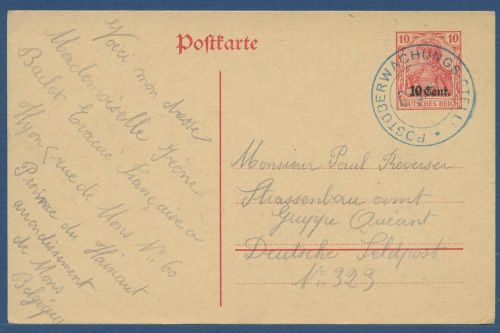 Postkarte
10 10
10 Cent.
DEUTSCHES REICH
POSTÜBERWACHUNGSSTELLE
Voici mon adresse
Mademoiselle Irène
Bailet Evacué française à
Hyon, rue de Mons No. 60
Province du Hainaut
arrondissement
de Mons
Belgique
Monsieur Paul
Strassenbau amt
Gruppe Quéant
Deutsche Feldpost
No. 323